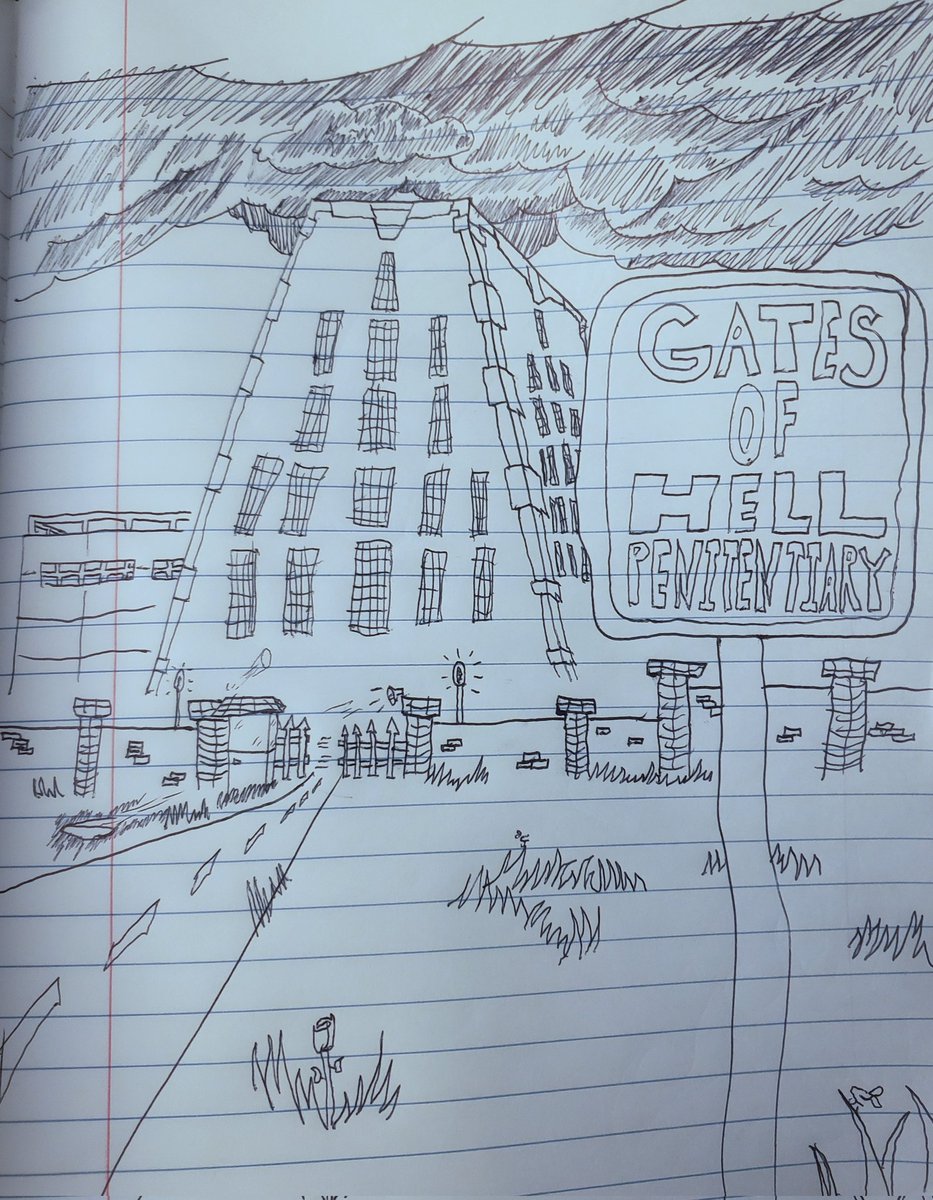 GATES
OF
HELL
PENITENTIARY